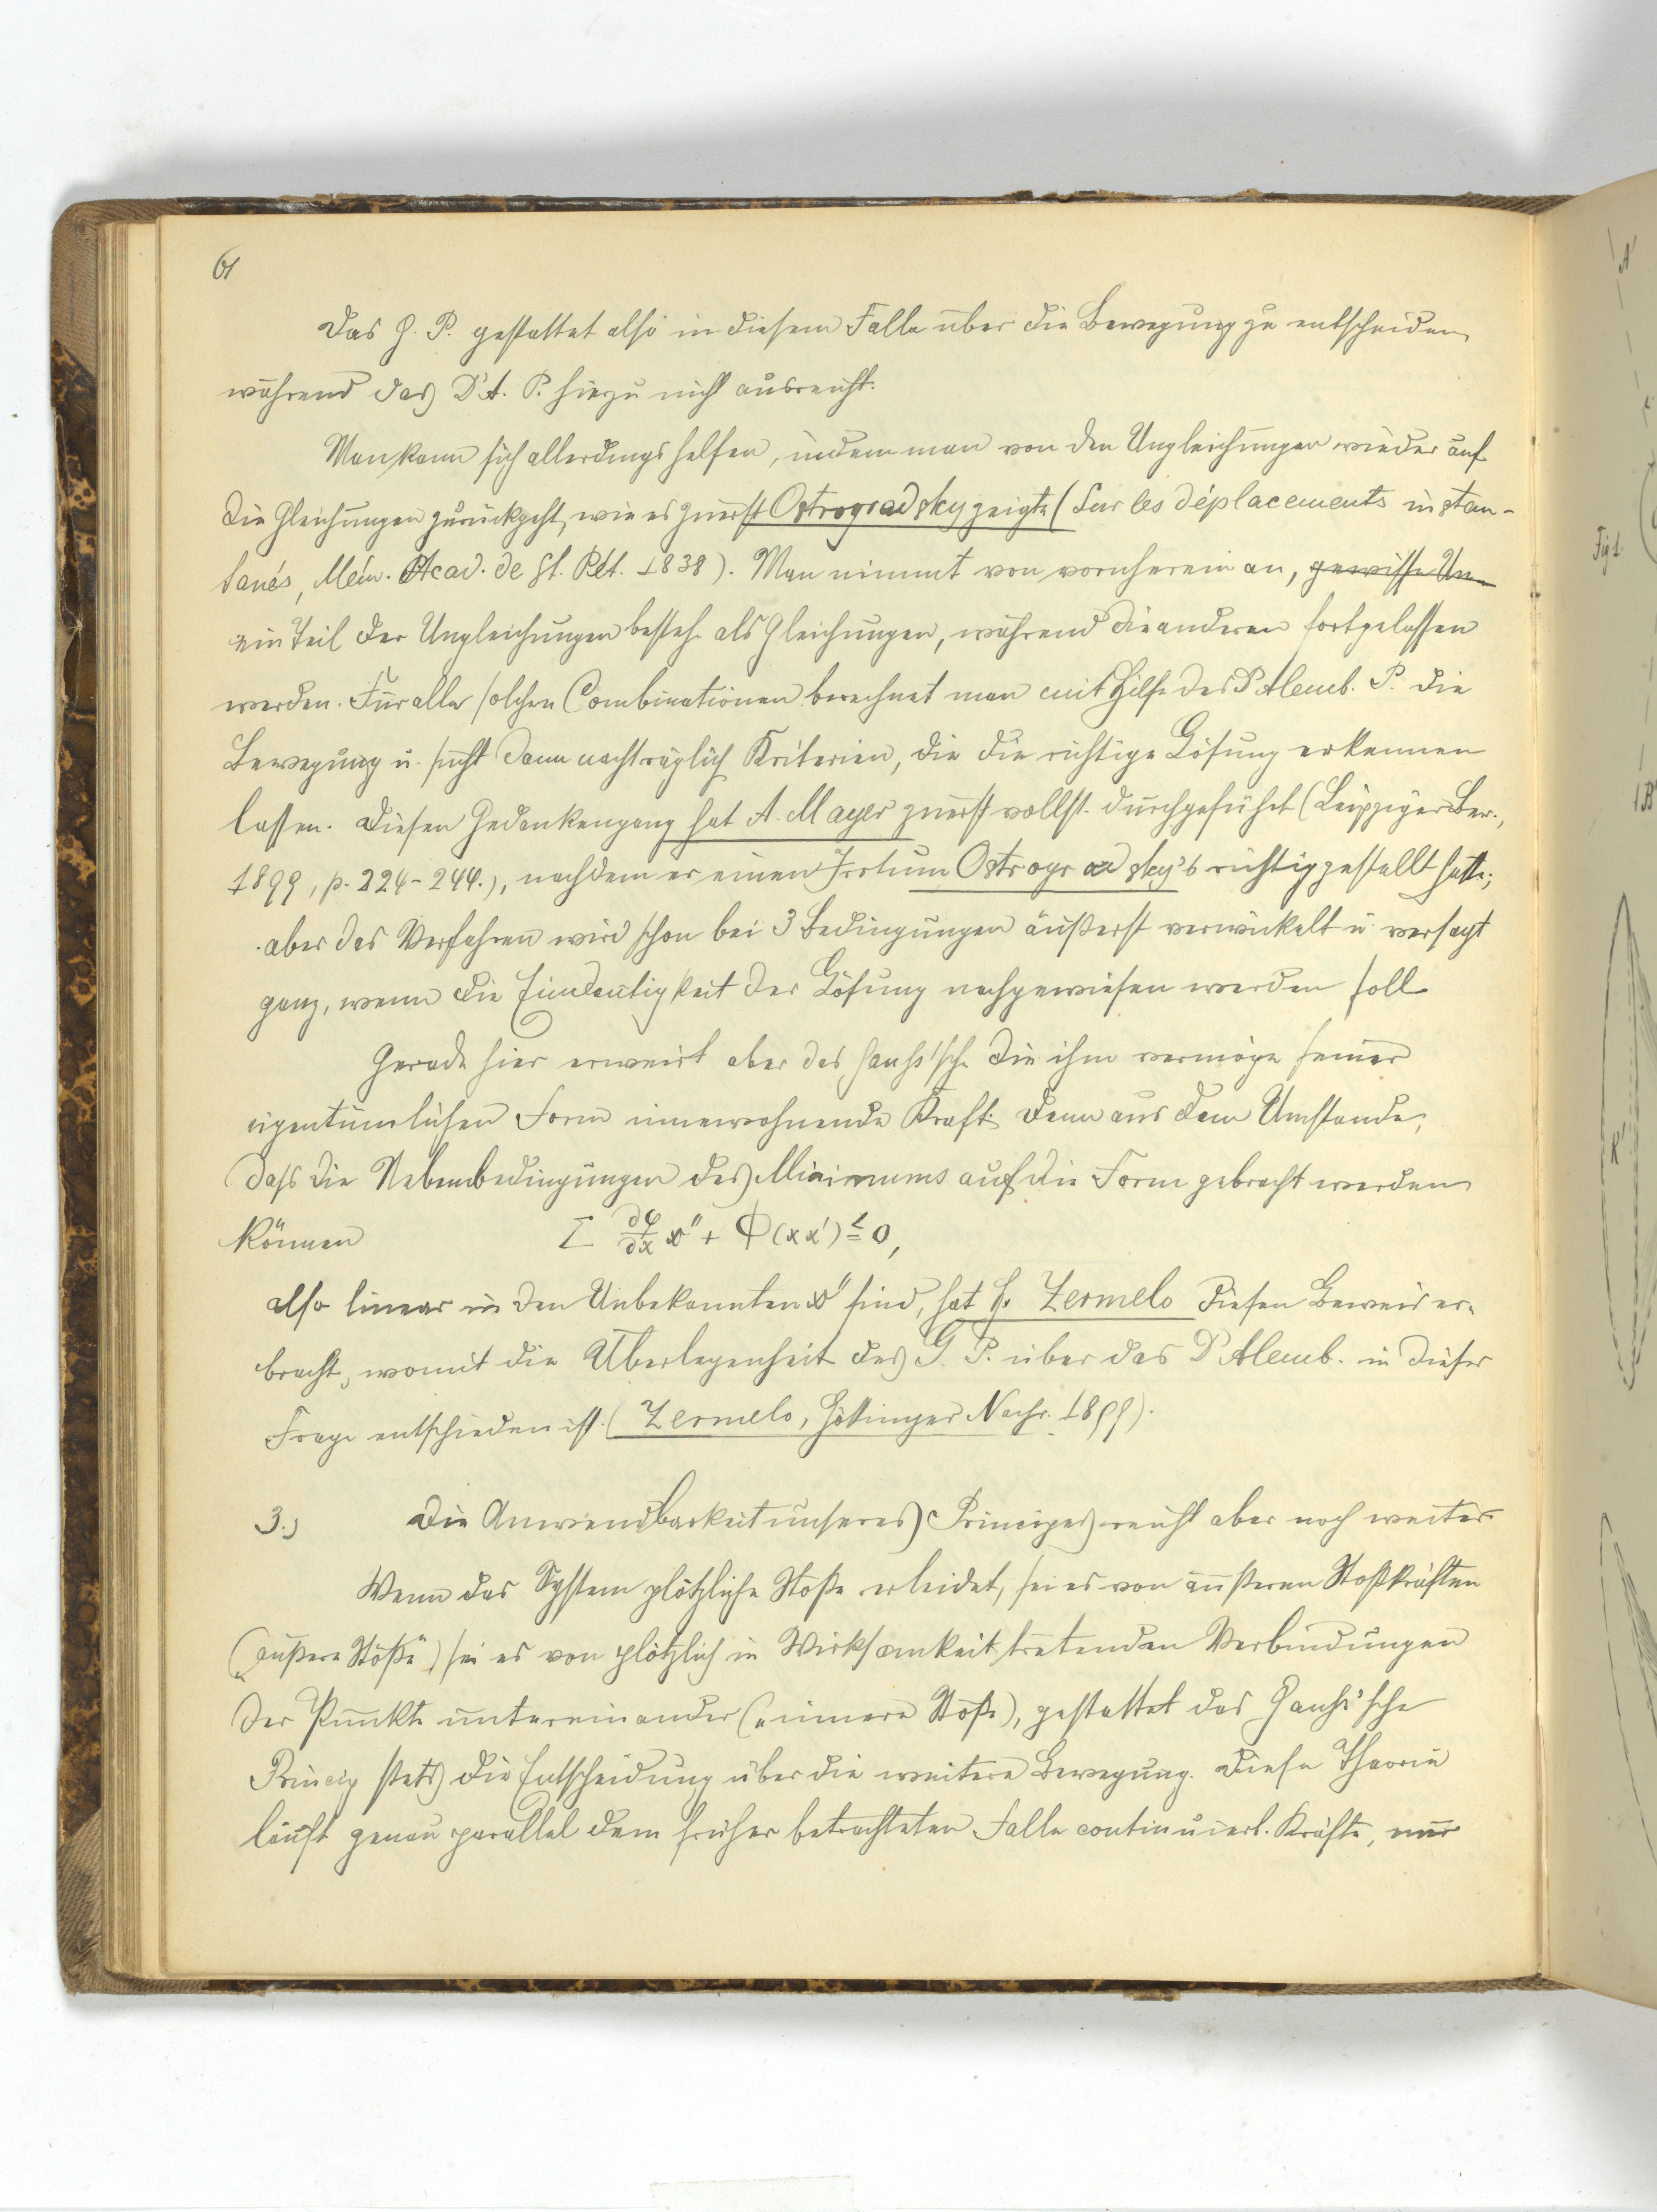 61
Das G. P. gestattet also in diesem Falle über die Bewegung zu entscheiden
während das D'A. P. hiezu nicht ausreicht.
Man kann sich allerdings helfen, indem man von den Ungleichungen wieder auf
die Gleichungen zurückgeht, wie es zuerst Ostrogradsky zeigte (Sur les déplacements instan-
tanés, Mém. Acad. de St. Pét. 1838). Man nimmt von vornherein an, gewisse Un-
ein Teil der Ungleichungen bestehe als Gleichungen, während die anderen fortgelassen
werden. Für alle solchen Combinationen berechnet man mit Hilfe des D'Alemb. P. die
Bewegung u. sucht dann nachträglich Kriterien, die die richtige Lösung erkennen
lassen. Diesen Gedankengang hat A. Mayer zuerst vollst. durchgeführt (Leipziger Ber.,
1899, p. 224-244.), nachdem er einen Irrtum Ostrogradsky's richtig gestellt hatte;
aber das Verfahren wird schon bei 3 Bedingungen äußerst verwickelt u. versagt
ganz, wenn die Eindeutigkeit der Lösung nachgewiesen werden soll
Gerade hier erweist aber das Gauß'sche die ihm vermöge seiner
eigentümlichen Form innewohnende Kraft. Denn aus dem Umstande,
dass die Nebenbedingungen des Minimums auf die Form gebracht werden
können Σ ∂φ/∂x x'' + Φ(x x') ≦ 0,
also linear in den Unbekannten x'' sind, hat H. Zermelo diesen Beweis er-
bracht, womit die Überlegenheit des G. P. über das D'Alemb. in dieser
Frage entschieden ist. (Zermelo, Göttinger Nachr. 1899).
3.) Die Anwendbarkeit unseres Principes reicht aber noch weiter
Wenn das System plötzliche Stöße erleidet, sei es von äusseren Stoßkräften
(„äußere Stöße“) sei es von plötzlich in Wirksamkeit tretenden Verbindungen
der Punkte untereinander („innere Stöße), gestattet das Gauß'sche
Princip stets die Entscheidung über die weitere Bewegung. Diese Theorie
läuft genau parallel dem früher betrachteten Falle continuierl. Kräfte, nur
Fig 1.